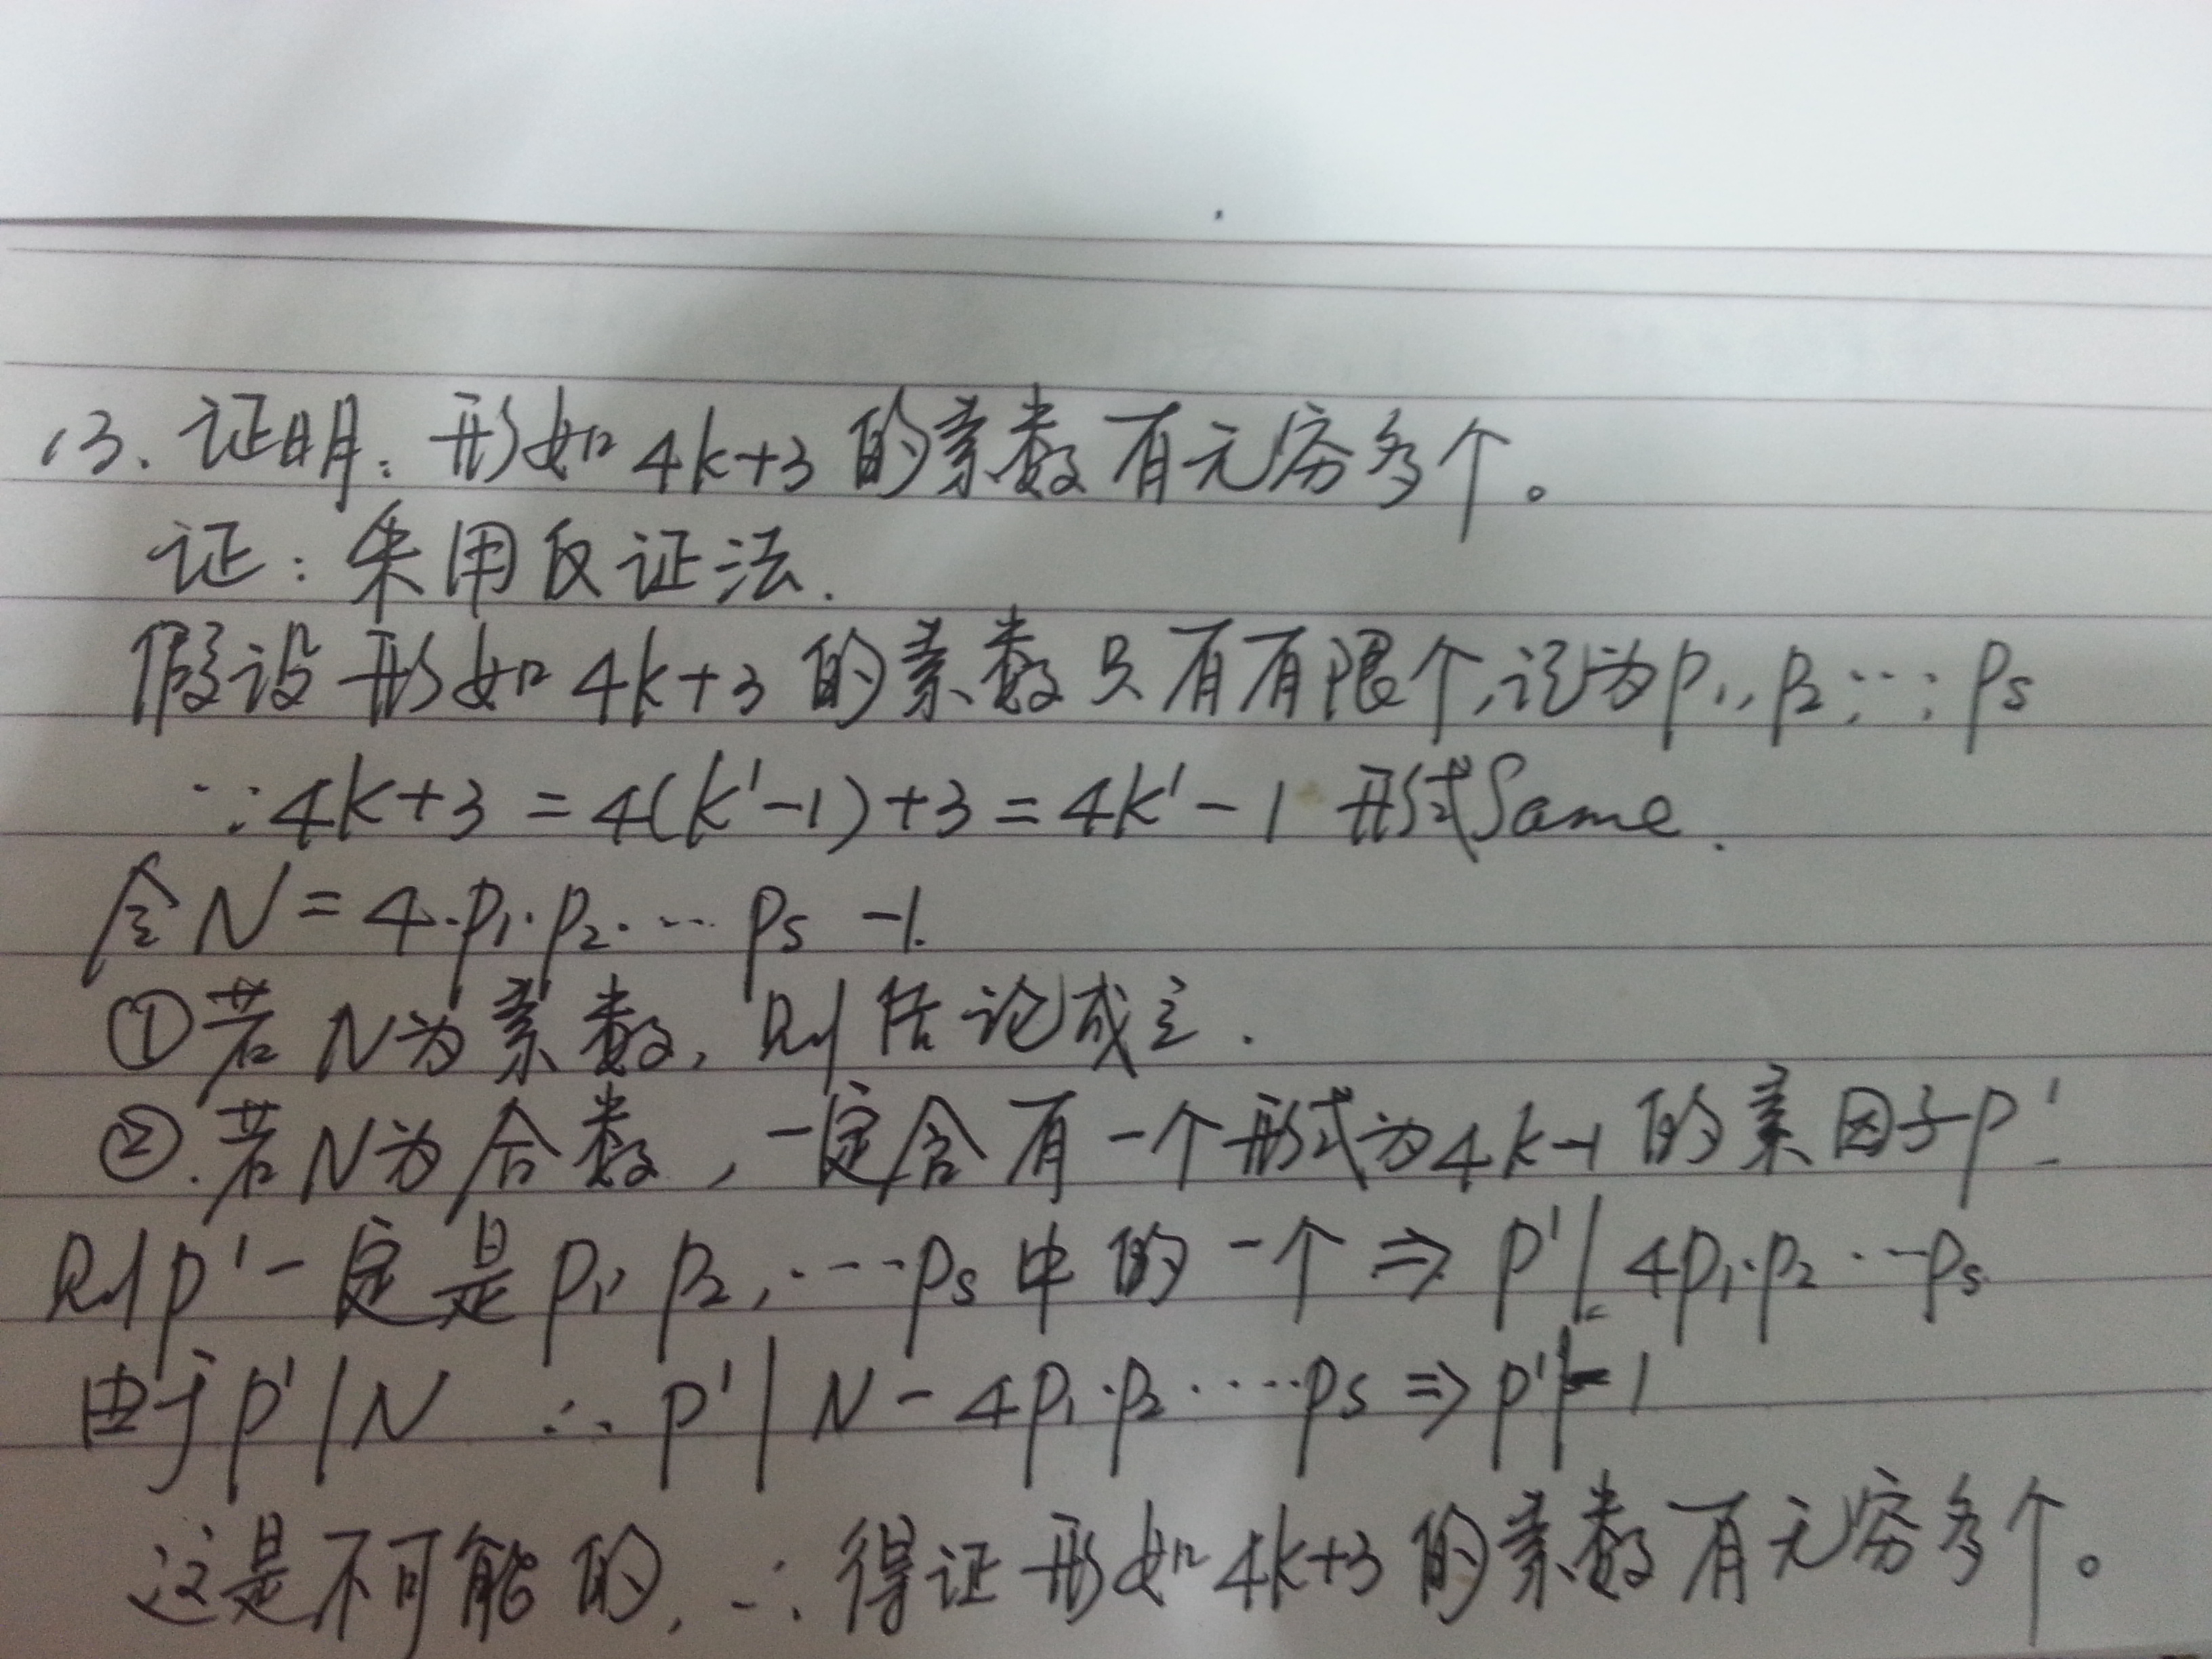 13. 证明：形如 4k+3 的素数有无穷多个。
证：采用反证法.
假设形如 4k+3 的素数只有有限个,记为 p₁, p₂, ⋯, pₛ
∵ 4k+3 = 4(k'-1)+3 = 4k'-1 形式 Same.
令 N = 4·p₁·p₂·⋯ pₛ -1.
① 若 N 为素数, 则结论成立.
②. 若 N 为合数, 一定含有一个形式为 4k-1 的素因子 p'.
则 p' 一定是 p₁, p₂, ⋯ pₛ 中的一个 ⇒ p' | 4p₁·p₂⋯pₛ
由于 p' | N ∴ p' | N - 4p₁·p₂⋯⋯pₛ ⇒ p' | -1
这是不可能的, ∴ 得证形如 4k+3 的素数有无穷多个。